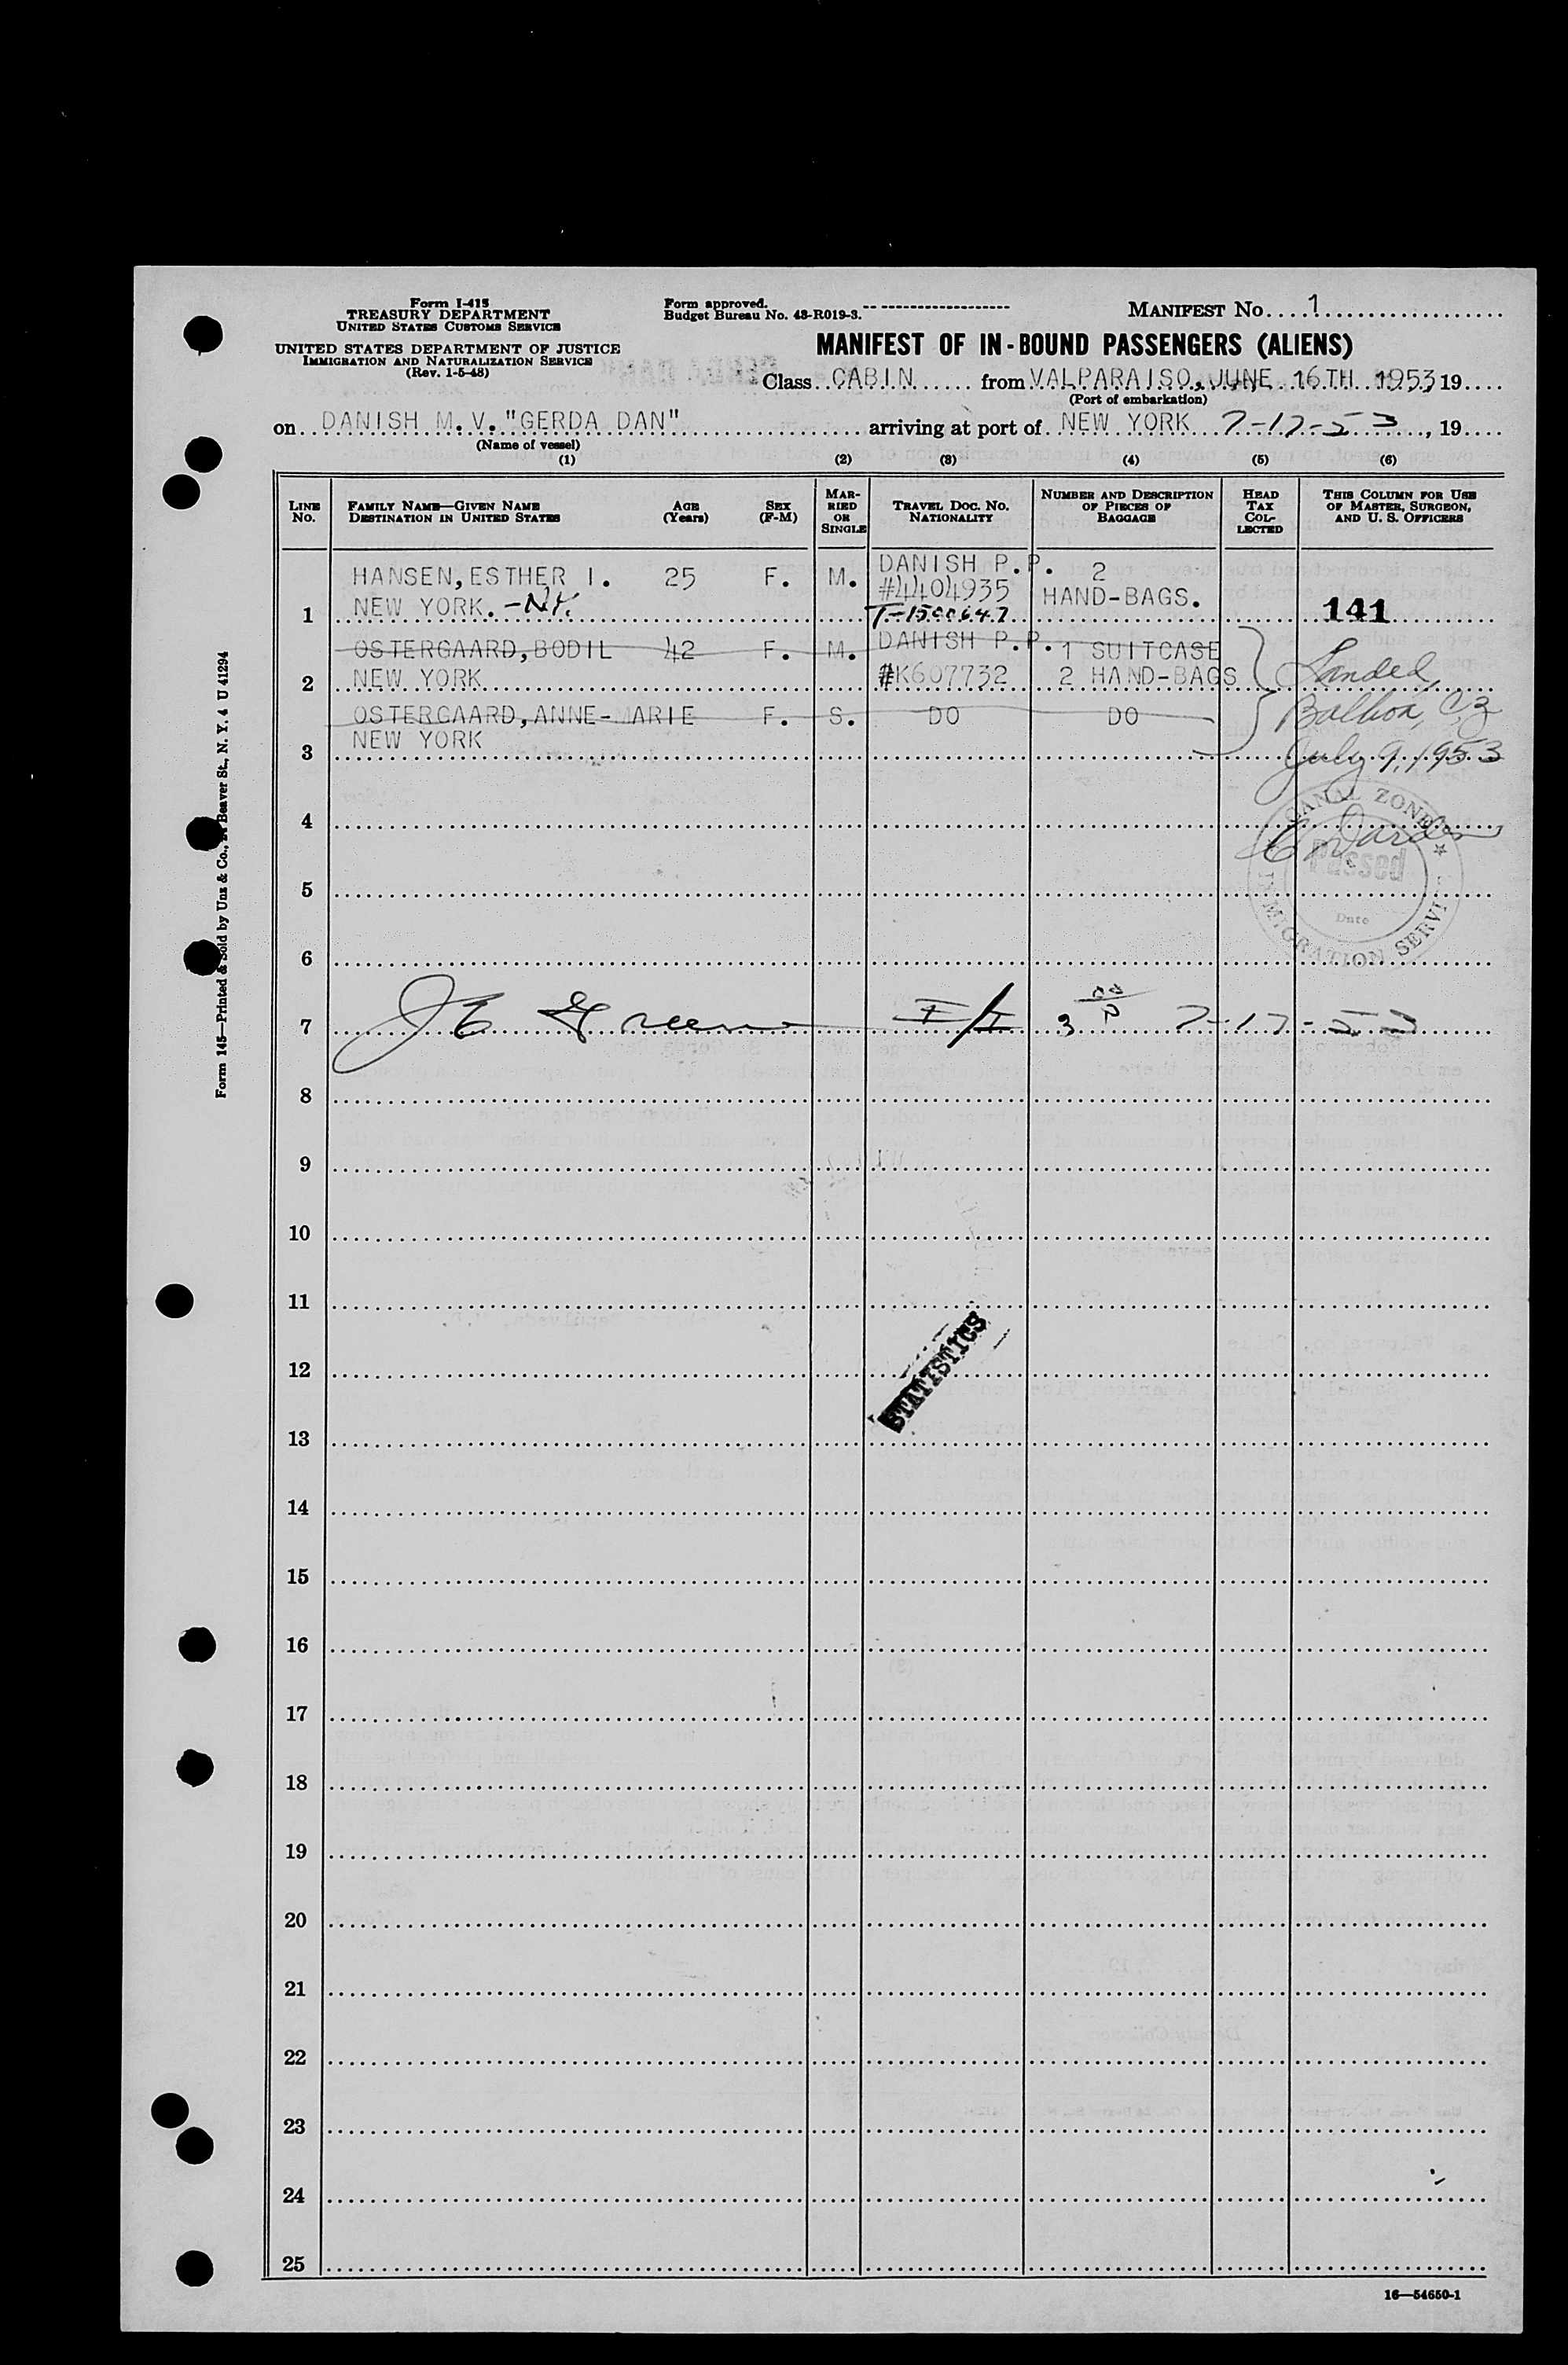 Form I-415
TREASURY DEPARTMENT
UNITED STATES CUSTOMS SERVICE
UNITED STATES DEPARTMENT OF JUSTICE
IMMIGRATION AND NATURALIZATION SERVICE
(Rev. 1-5-48)
Form approved.
Budget Bureau No. 43-R019-3.
MANIFEST No. 1
MANIFEST OF IN-BOUND PASSENGERS (ALIENS)
Class CABIN from VALPARAISO, JUNE 16TH 1953 19
(Port of embarkation)
on DANISH M.V. "GERDA DAN" arriving at port of NEW YORK 7-17-53, 19
(Name of vessel)
(1) (2) (3) (4) (5) (6)
LINE No. FAMILY NAME—GIVEN NAME DESTINATION IN UNITED STATES AGE (Years) SEX (F-M) MARRIED OR SINGLE TRAVEL DOC. NO. NATIONALITY NUMBER AND DESCRIPTION OF PIECES OF BAGGAGE HEAD TAX COLLECTED THIS COLUMN FOR USE OF MASTER, SURGEON, AND U. S. OFFICERS
HANSEN, ESTHER I. 25 F. M. DANISH P.P. 2
#4404935 HAND-BAGS.
1 NEW YORK. -N.Y. T-1500647 141
OSTERGAARD, BODIL 42 F. M. DANISH P.P. 1 SUITCASE
2 NEW YORK #K607732 2 HAND-BAGS
Landed
OSTERGAARD, ANNE-MARIE F. S. DO DO
Balboa, CZ
3 NEW YORK
July 9, 1953
4
CANAL ZONE
Passed
Date
IMMIGRATION SERVICE
5
6
7 J E Green I/I 3 00/P 7-17-53
8
9
10
11
12
STATISTICS
13
14
15
16
17
18
19
20
21
22
23
24
25
16—54650-1
Form 145—Printed & Sold by Unz & Co., Beaver St., N. Y. 4 U 41294